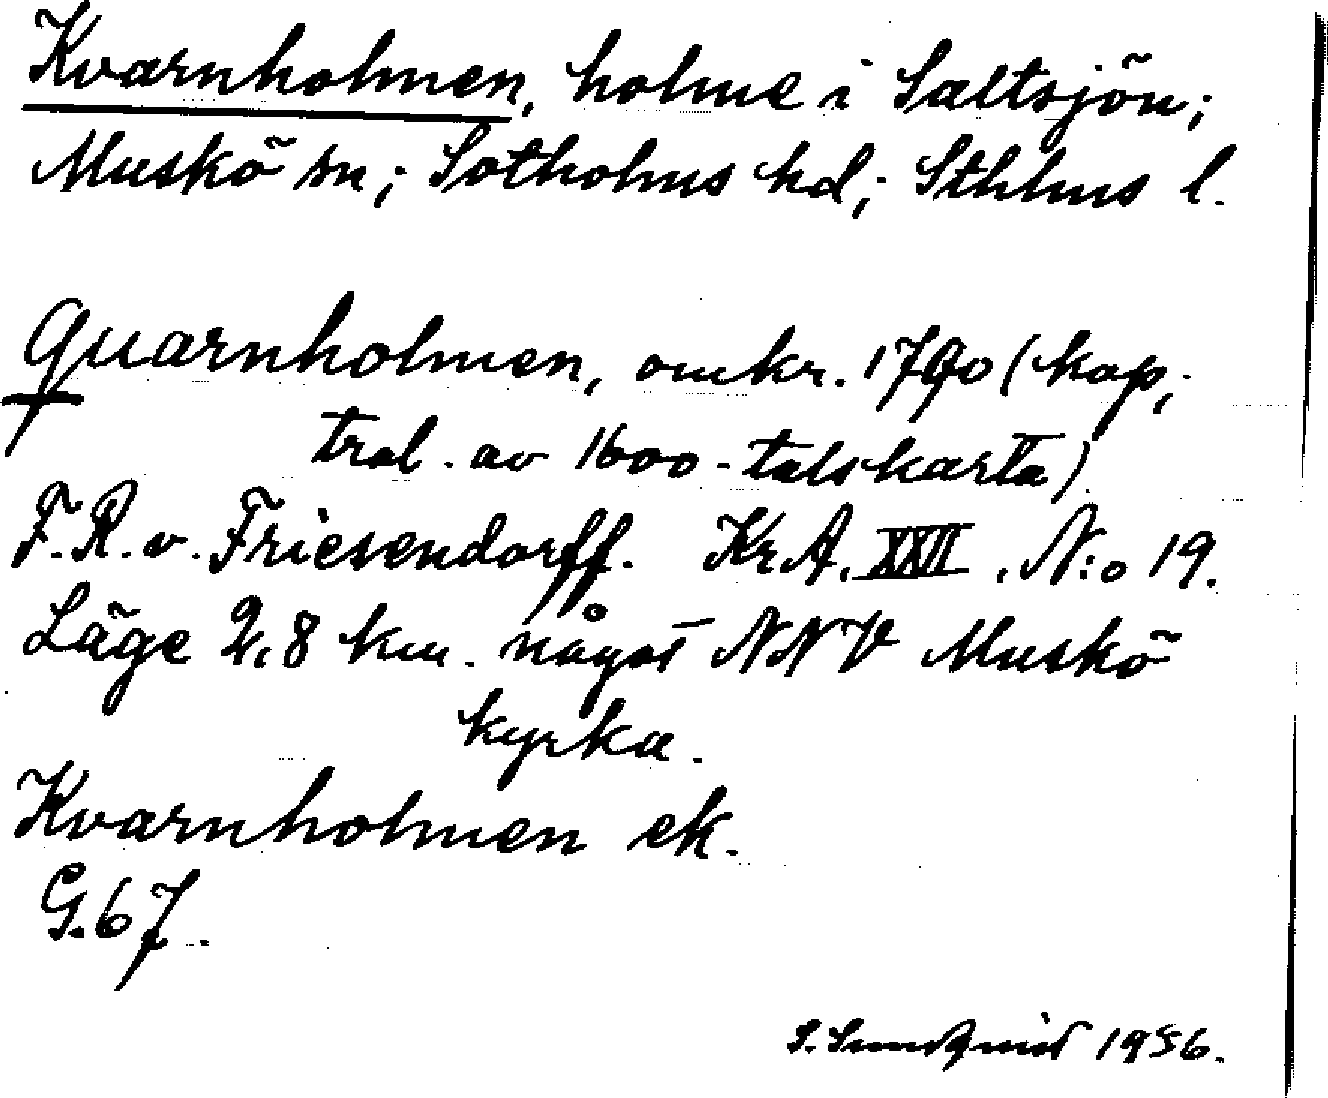 Kvarnholmen, holme i Saltsjön;
Muskö sn; Sotholms hd; Sthlms l.
Quarnholmen, omkr. 1790 (kop,
trol. av 1600-talskarta)
F.R.v. Friesendorff. Kr.A. XXII, N:o 19.
Läge 2,8 km. något NNV Muskö
kyrka.
Kvarnholmen ek.
G.67.
S. Sundqvist 1956.